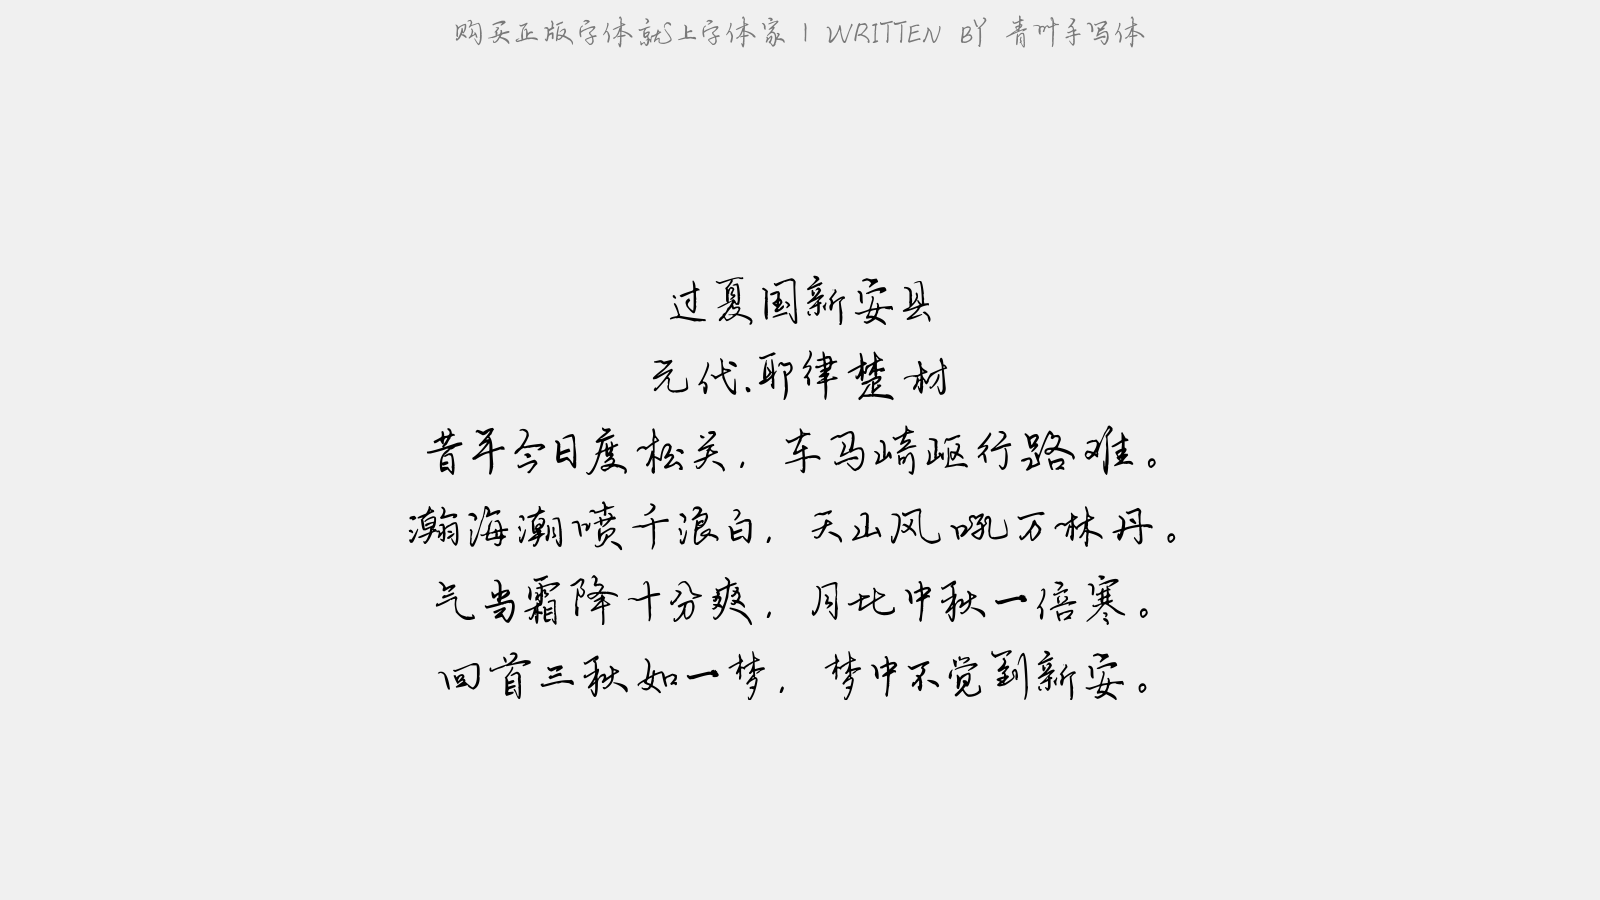 购买正版字体就上字体家 | WRITTEN BY 青叶手写体
过夏国新安县
元代.耶律楚材
昔年今日度松关，车马崎岖行路难。
瀚海潮喷千浪白，天山风吼万林丹。
气当霜降十分爽，月比中秋一倍寒。
回首三秋如一梦，梦中不觉到新安。